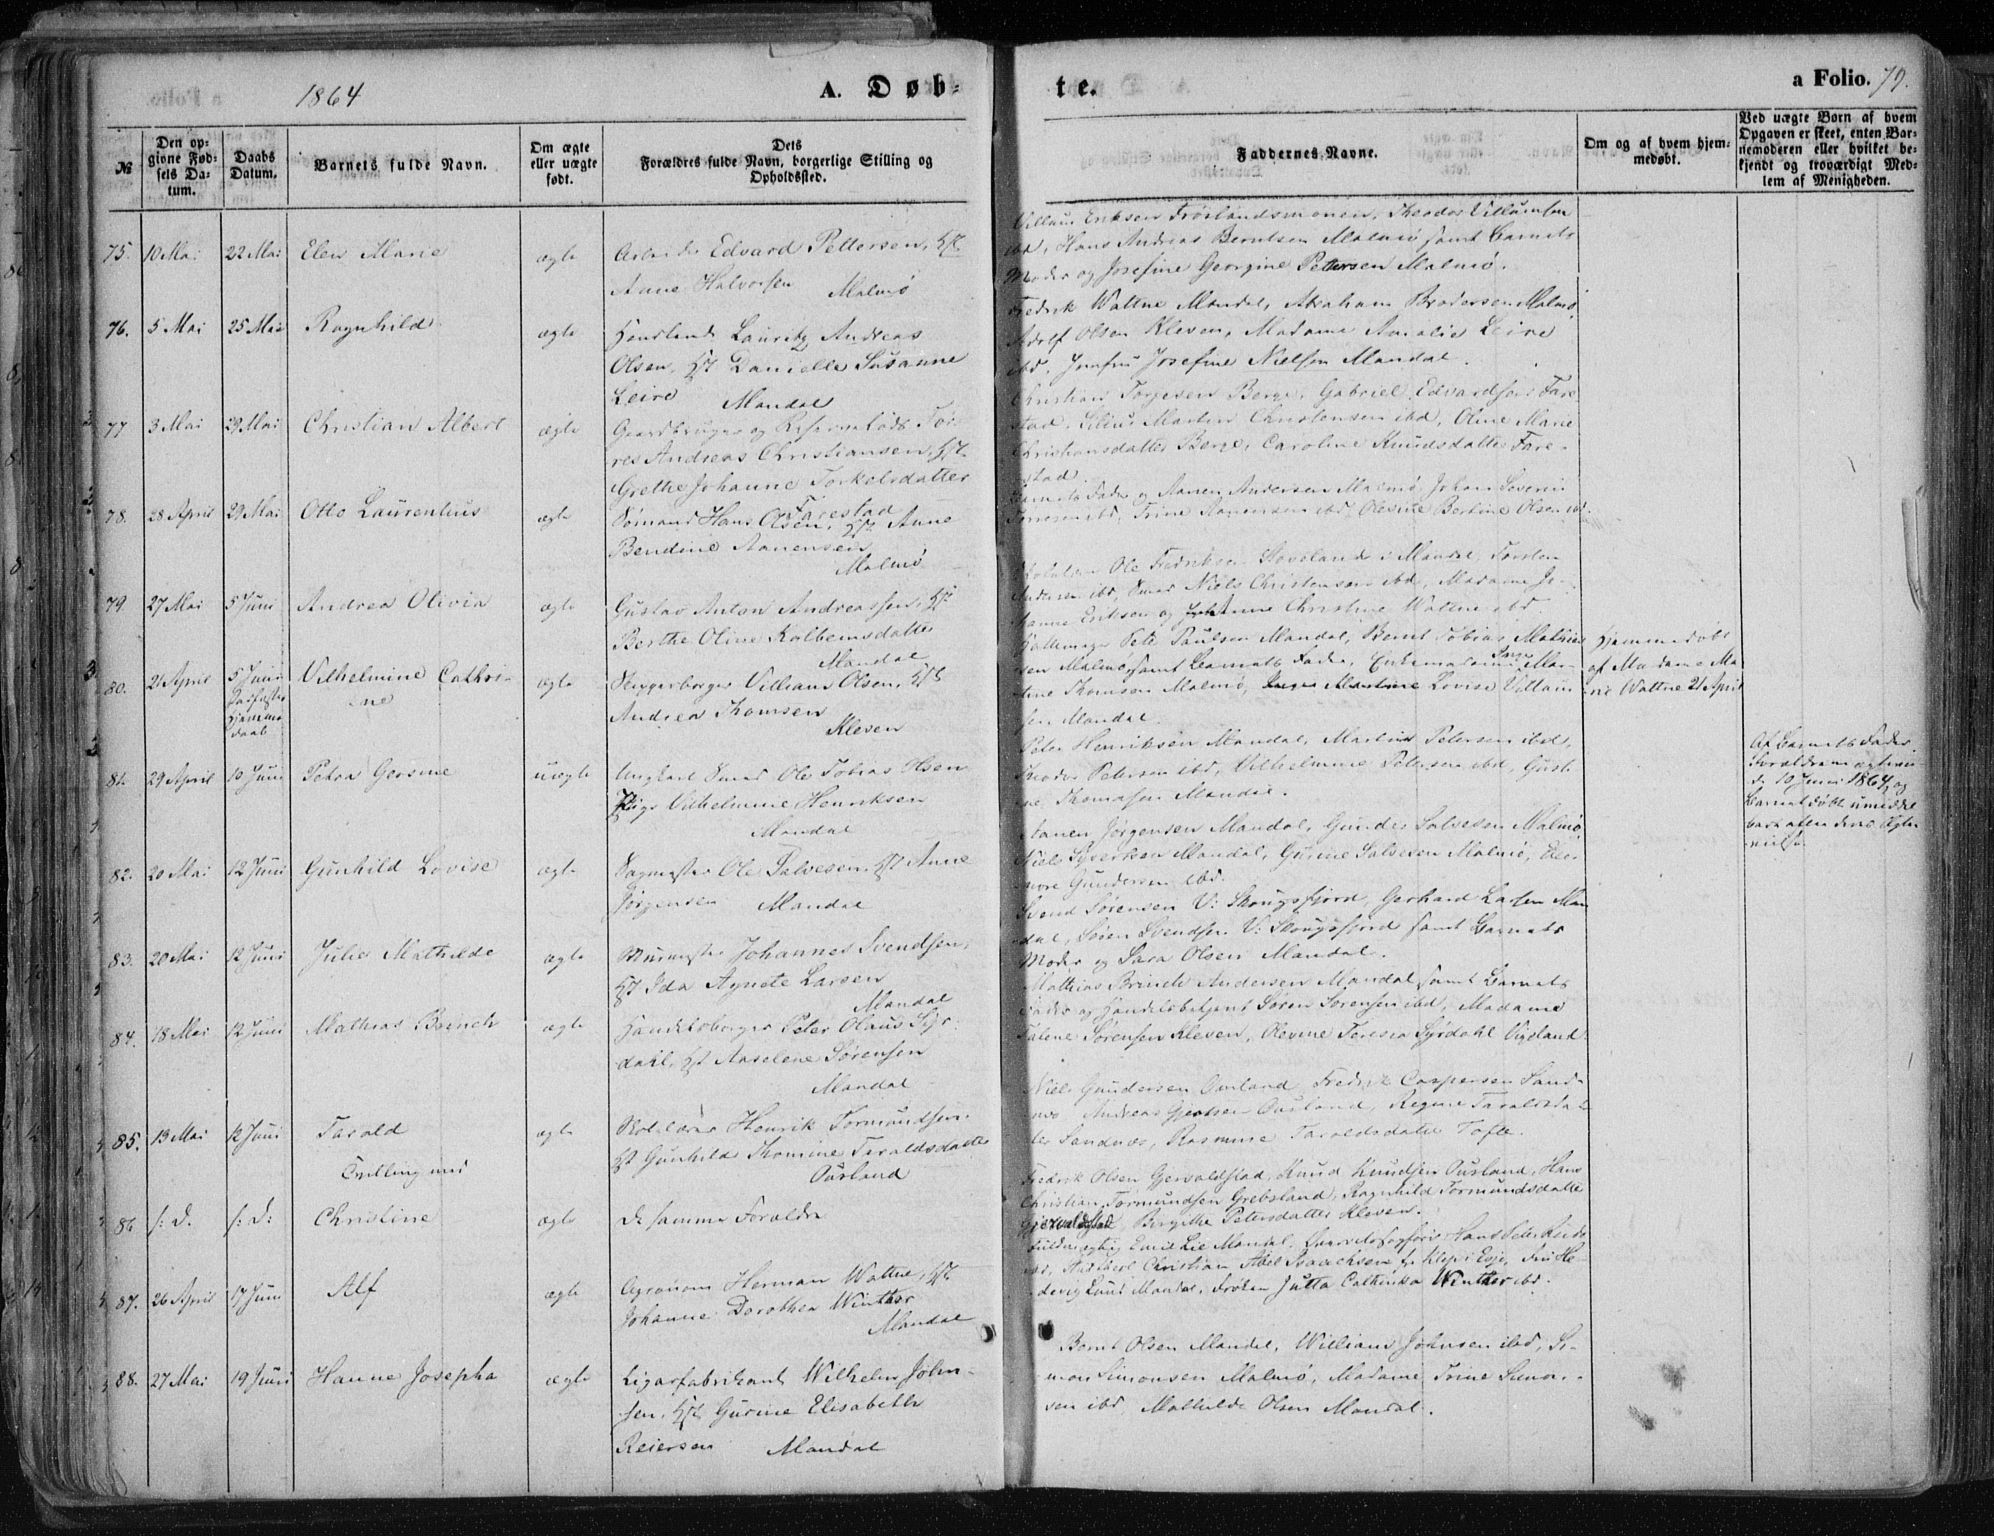 1864
A. Døb-
te.
a Folio. 79.
№
Den op-
givne Fød-
sels Da-
tum.
Daabs
Datum.
Barnets fulde Navn.
Om ægte
eller uægte
født.
Dets
Forældres fulde Navn, borgerlige Stilling og
Opholdssted.
Faddernes Navne.
Om og af hvem hjem-
medøbt.
Ved uægte Børn af hvem
Opgaven er skeet, enten Bar-
nemoderen eller hvilket be-
kjendt og troværdigt Med-
lem af Menigheden.
75. 10 Mai 22 Mai Elen Marie ægte Edvard Pettersen, Hst
Anne Halvorsen
Malmø
Eriksen Frøslandsmonen, Theodor Villumsen
ibd, Hans Andreas Berntsen Malmø samt Barnets
Moder og Josefine Georgine Pettersen Malmø.
76. 5 Mai 25 Mai Ragnhild ægte Lauritz Andreas
Olsen, Hst Danielle Susanne
Leire Mandal
Fredrik Wattne Mandal, Abraham Brodersen Malmø,
Adolf Olsen Kleven, Madame Amalie Leire
ibd, Jomfru Josefine Nielsen Mandal.
77 3 Mai 29 Mai Christian Albert ægte Gaardbruger og
Andreas Christiansen, Hst
Grethe Johanne Torkelsdatter
Farestad
Christian Torjesen Berge, Gabriel Edvardsen Fare-
stad, Martin Christensen ibd, Oline Marie
Christiansdatter Berge, Caroline Knudsdatter Fare-
stad.
78. 28 April 29 Mai Otto Laurentius ægte Sømand Hans Olsen, Hst Anne
Bendine Aanensen
Malmø
Barnets Fader og Aanen Andersen Malmø, Johan Severin
ibd, Trine Aanensen ibd, Olevine Bertine Olsen ibd.
79. 27 Mai 5 Juni Andrea Olivia ægte Gustav Anton Andreassen, Hst
Berthe Oline Kolbensdatter
Mandal
Ole Fredriksen Skoveland i Mandal, Torsten
Andersen ibd, Smed Niels Christensen ibd, Madame Jo-
hanne Eriksen og Anne Christine Wattne ibd.
80. 21 April 5 Juni
Hjemme
daab
Vilhelmine Cathri-
ne
ægte Villiam Olsen, Hst
Andrea Thomsen
Kleven
Paulsen Mandal, Bernt Tobias Mathias-
sen Malmø, samt Barnets Fader, Enkemadame Mar-
tine Thomsen Malmø, Lovise Villum-
sen Mandal.
Hjemmedøbt
af Madame Ma-
rie Wattne 21 April
81. 29 April 10 Juni Petra Gersine uægte Ungkarl Smed Ole Tobias
Pige Vilhelmine Henriksen
Mandal
Peter Henriksen Mandal, Martin Petersen ibd,
Theodor Petersen ibd, Vilhelmine Petersen ibd,
Thomasen Mandal.
Af Barnets Fader.
Forældrene
10 Juni 1864, og
Barnet døbt umiddel
bart efter deres
82. 20 Mai 12 Juni Gunhild Lovise ægte Ole Salvesen, Hst Anne
Jørgensen Mandal
Aanen Jørgensen Mandal, Gunder Salvesen Malmø,
Niels Syvertsen Mandal, Gurine Salvesen Malmø, Ele-
nore Gundersen ibd.
83. 20 Mai 12 Juni Julie Mathilde ægte Murmester Johannes Svendsen,
Hst Ida Agnete Larsen
Mandal
Svend Sørensen V: Skougsfjord, Gerhard Larsen Man
dal, Søren Svendsen V: Skougsfjord samt Barnets
Moder og Sara Olsen Mandal.
84. 18 Mai 12 Juni Mathias Brinch ægte Handelsborger Peter Olaus Syr-
dahl, Hst Aaselene Sørensen
Mandal
Mathias Brinch Andersen Mandal samt Barnets
Fader og Handelsbetjent Søren Sørensen ibd, Madame
Sørensen Kleven, Olevine Teresia Syrdahl Vigeland.
85. 13 Mai 12 Juni Tarald
Tvilling med
ægte Skolelærer Henrik Tormundsen
Hst Gunhilde Thomine Taraldsdatter
Ousland
Niels Gundersen Ousland, Fredrik Caspersen Sand-
næs, Andreas Gjertsen Ousland, Regine Taraldsdat-
ter Sandnæs, Rasmine Taraldsdatter Tofte.
86 s: d. s: d: Christine ægte De samme Forældre
Fredrik Olsen Gjervoldstad, Knud Knudsen Ousland, Hans
Christian Tormundsen Grebsland, Ragnhild Tormundsdatter
Gjervoldstad, Birgithe Petersdatter Kleven.
87. 26 April 17 Juni Alf ægte Agronom Herman Wattne, Hst
Johanne Dorothea Winther
Mandal
Emil Lie Mandal, Hans Peter
Christian Abel Isaachsen
Mandal, Frøken Jutta Cathinka Winther ibd.
88. 27 Mai 19 Juni Hanne Josepha ægte Cigarfabrikant Wilhelm John-
sen, Hst Gurine Elisabeth
Reiersen Mandal
Bernt Olsen Mandal, William Johnsen ibd, Si-
mon Simonsen Malmø, Madame Trine Simon-
sen ibd, Mathilde Olsen Mandal.